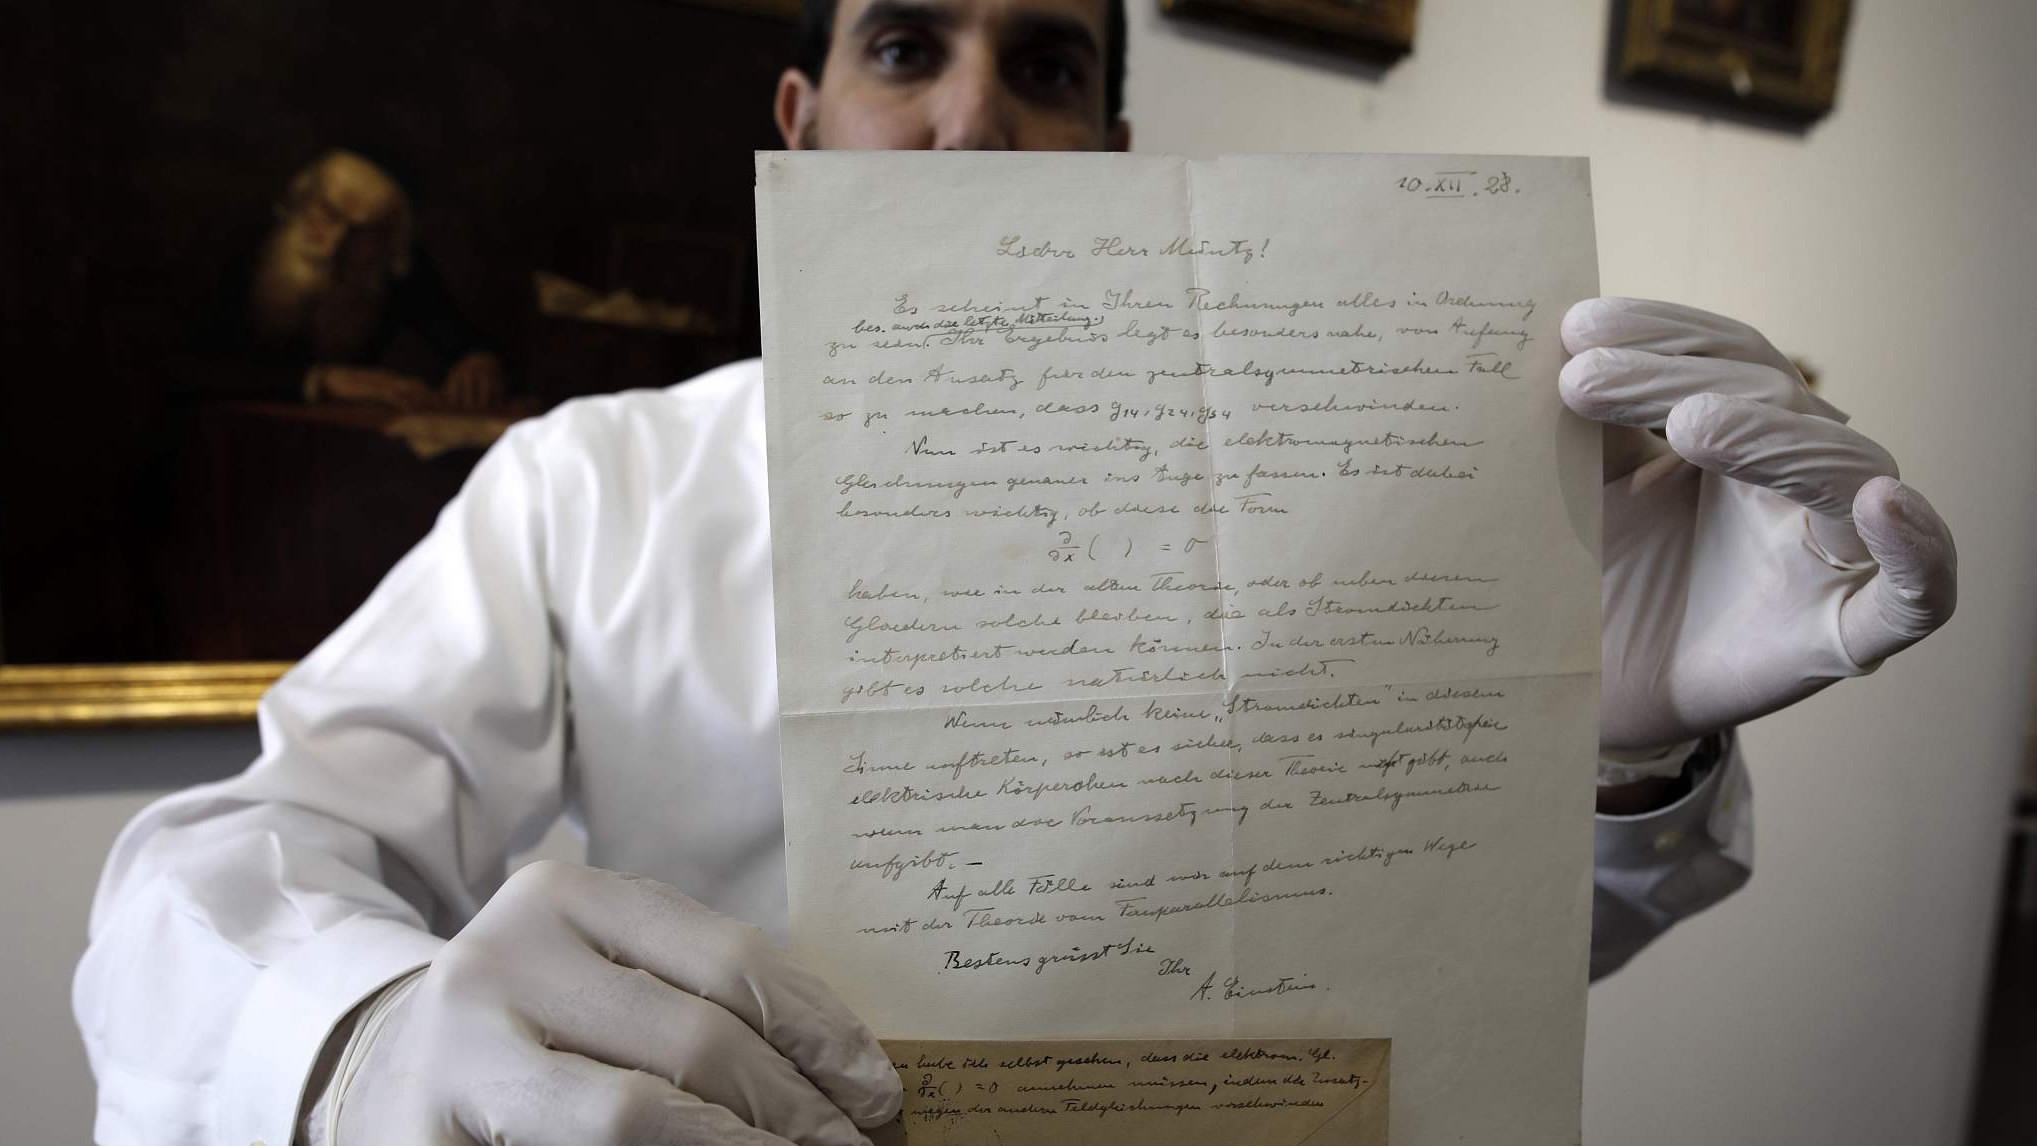 10.XII.28.
Lieber Herr Müntz!
Es scheint in Ihren Rechnungen alles in Ordnung
bes. auch die letzte Mitteilung.
zu sein. Ihr Ergebnis legt es besonders nahe, von Anfang
an den Ansatz für den zentralsymmetrischen Fall
so zu machen, dass g14, g24, g34 verschwinden.
Nun ist es wichtig, die elektromagnetischen
Gleichungen genauer ins Auge zu fassen. Es ist dabei
besonders wichtig, ob diese die Form
∂/∂x ( ) = 0
haben, wie in der alten Theorie, oder ob neben diesen
Gliedern solche bleiben, die als Stromdichten
interpretiert werden können. In der ersten Näherung
gibt es solche natürlich nicht.
Wenn nämlich keine „Stromdichten" in diesem
Sinne auftreten, so ist es sicher, dass es singularitätsfreie
elektrische Körperchen nach dieser Theorie nicht gibt, auch
wenn man die Voraussetzung der Zentralsymmetrie
aufgibt. —
Auf alle Fälle sind wir auf dem richtigen Wege
mit der Theorie vom Fernparallelismus.
Bestens grüsst Sie
Ihr
A. Einstein.
habe ich selbst gesehen, dass die elektrom. Gl.
∂/∂x ( ) = 0 annehmen müssen, indem die Zusatz-
wegen der andern Feldgleichungen verschwinden